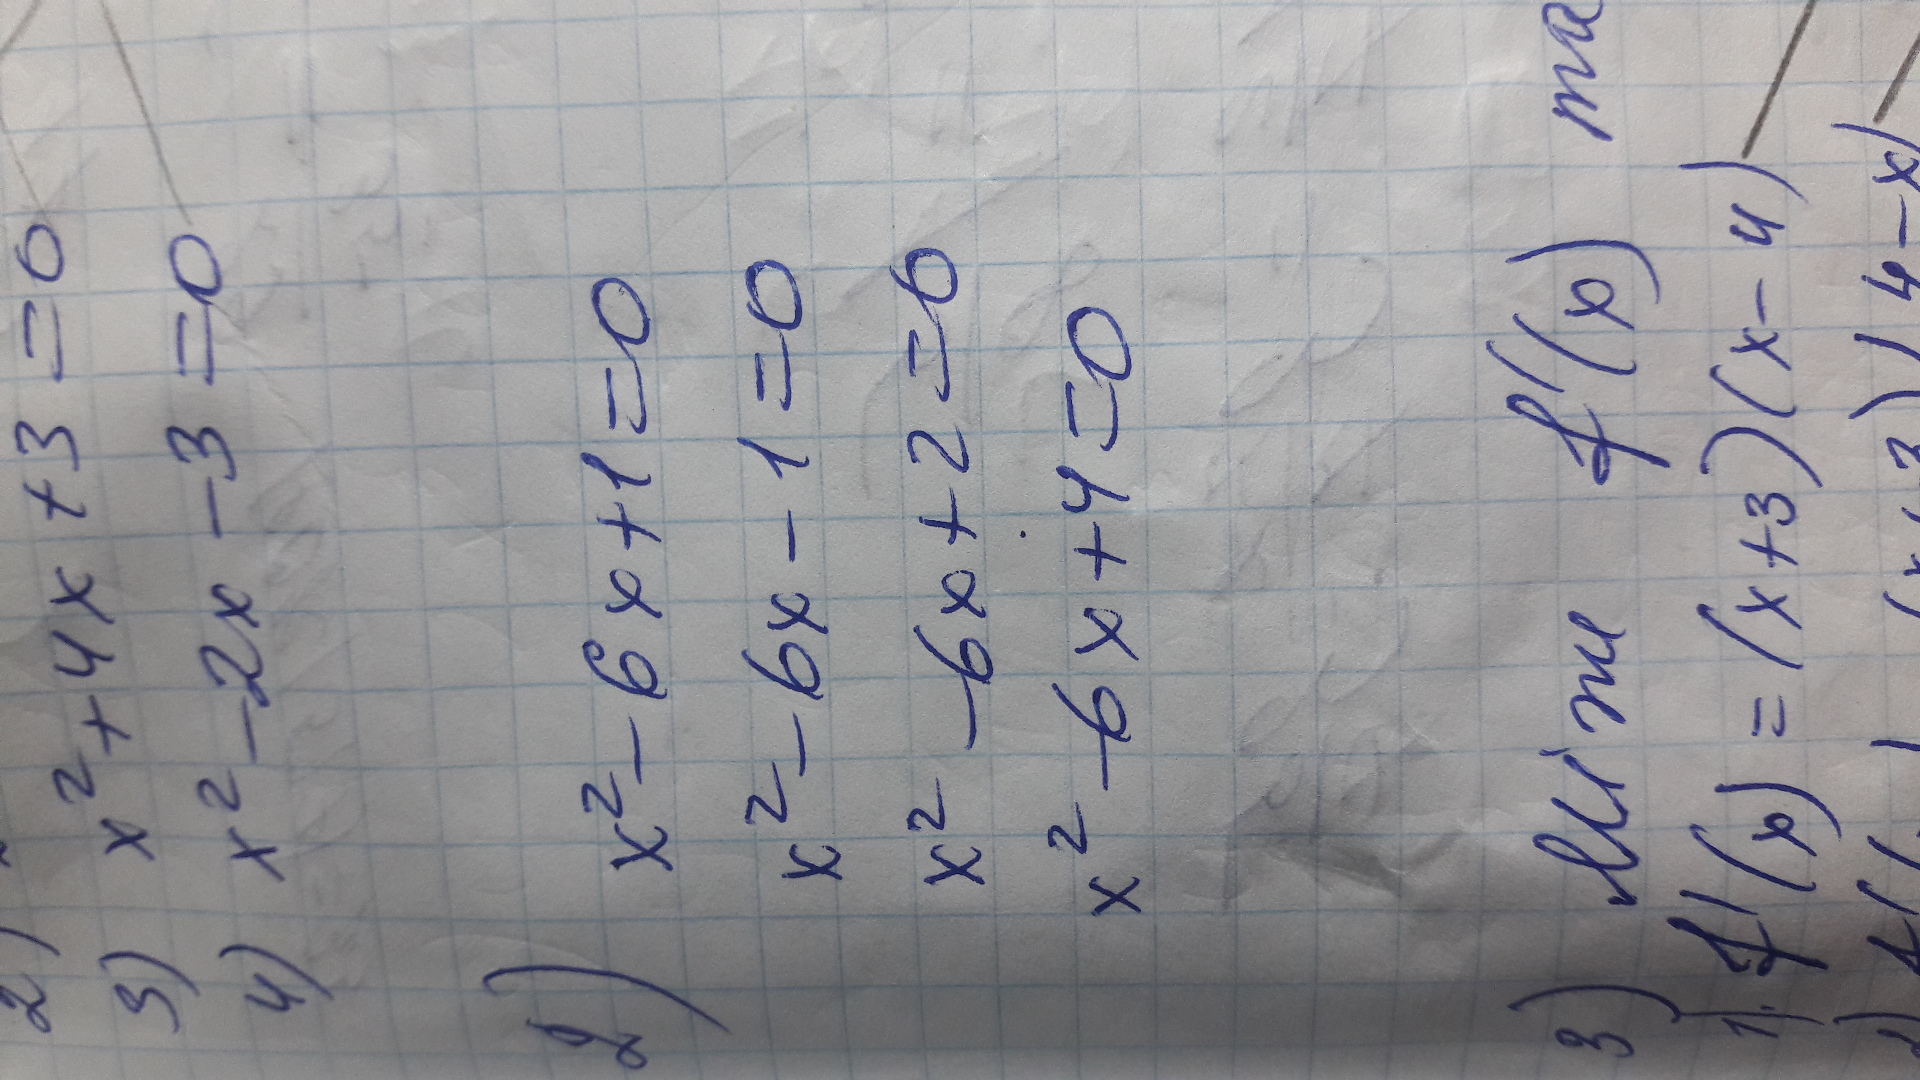 2)
3) x² + 4x + 3 = 0
4) x² - 2x - 3 = 0
2) x² - 6x + 1 = 0
x² - 6x - 1 = 0
x² - 6x + 2 = 0
x² - 6x + 4 = 0
3) між f'(x) та
1. f'(x) = (x+3)(x-4)
2) 4-x)